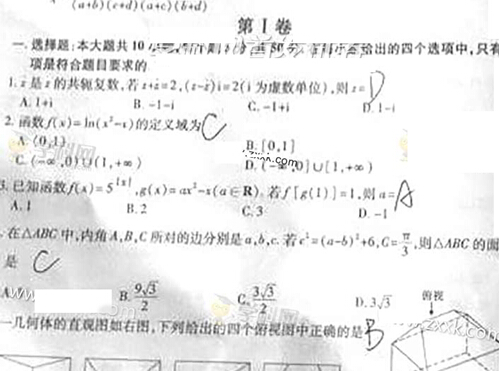 (a+b)(c+d)(a+c)(b+d)
第 I 卷
一、选择题:本大题共10小题 50分 给出的四个选项中,只有
项是符合题目要求的
1. z̄是z的共轭复数,若z+z̄=2,(z-z̄)i=2(i为虚数单位),则z= D
A. 1+i B. -1-i C. -1+i D. 1-i
2. 函数f(x)=ln(x²-x)的定义域为 C
A. (0,1) B. [0,1]
C. (-∞,0)∪(1,+∞) D. (-∞,0]∪[1,+∞)
3. 已知函数f(x)=5^{|x|},g(x)=ax²-x(a∈R),若f[g(1)]=1,则a= A
A. 1 B. 2 C. 3 D. -1
在△ABC中,内角A,B,C所对的边分别是a,b,c.若c²=(a-b)²+6,C=π/3,则△ABC的面
是 C
A. B. 9√3/2 C. 3√3/2 D. 3√3
一几何体的直观图如右图,下列给出的四个俯视图中正确的是 B
俯视